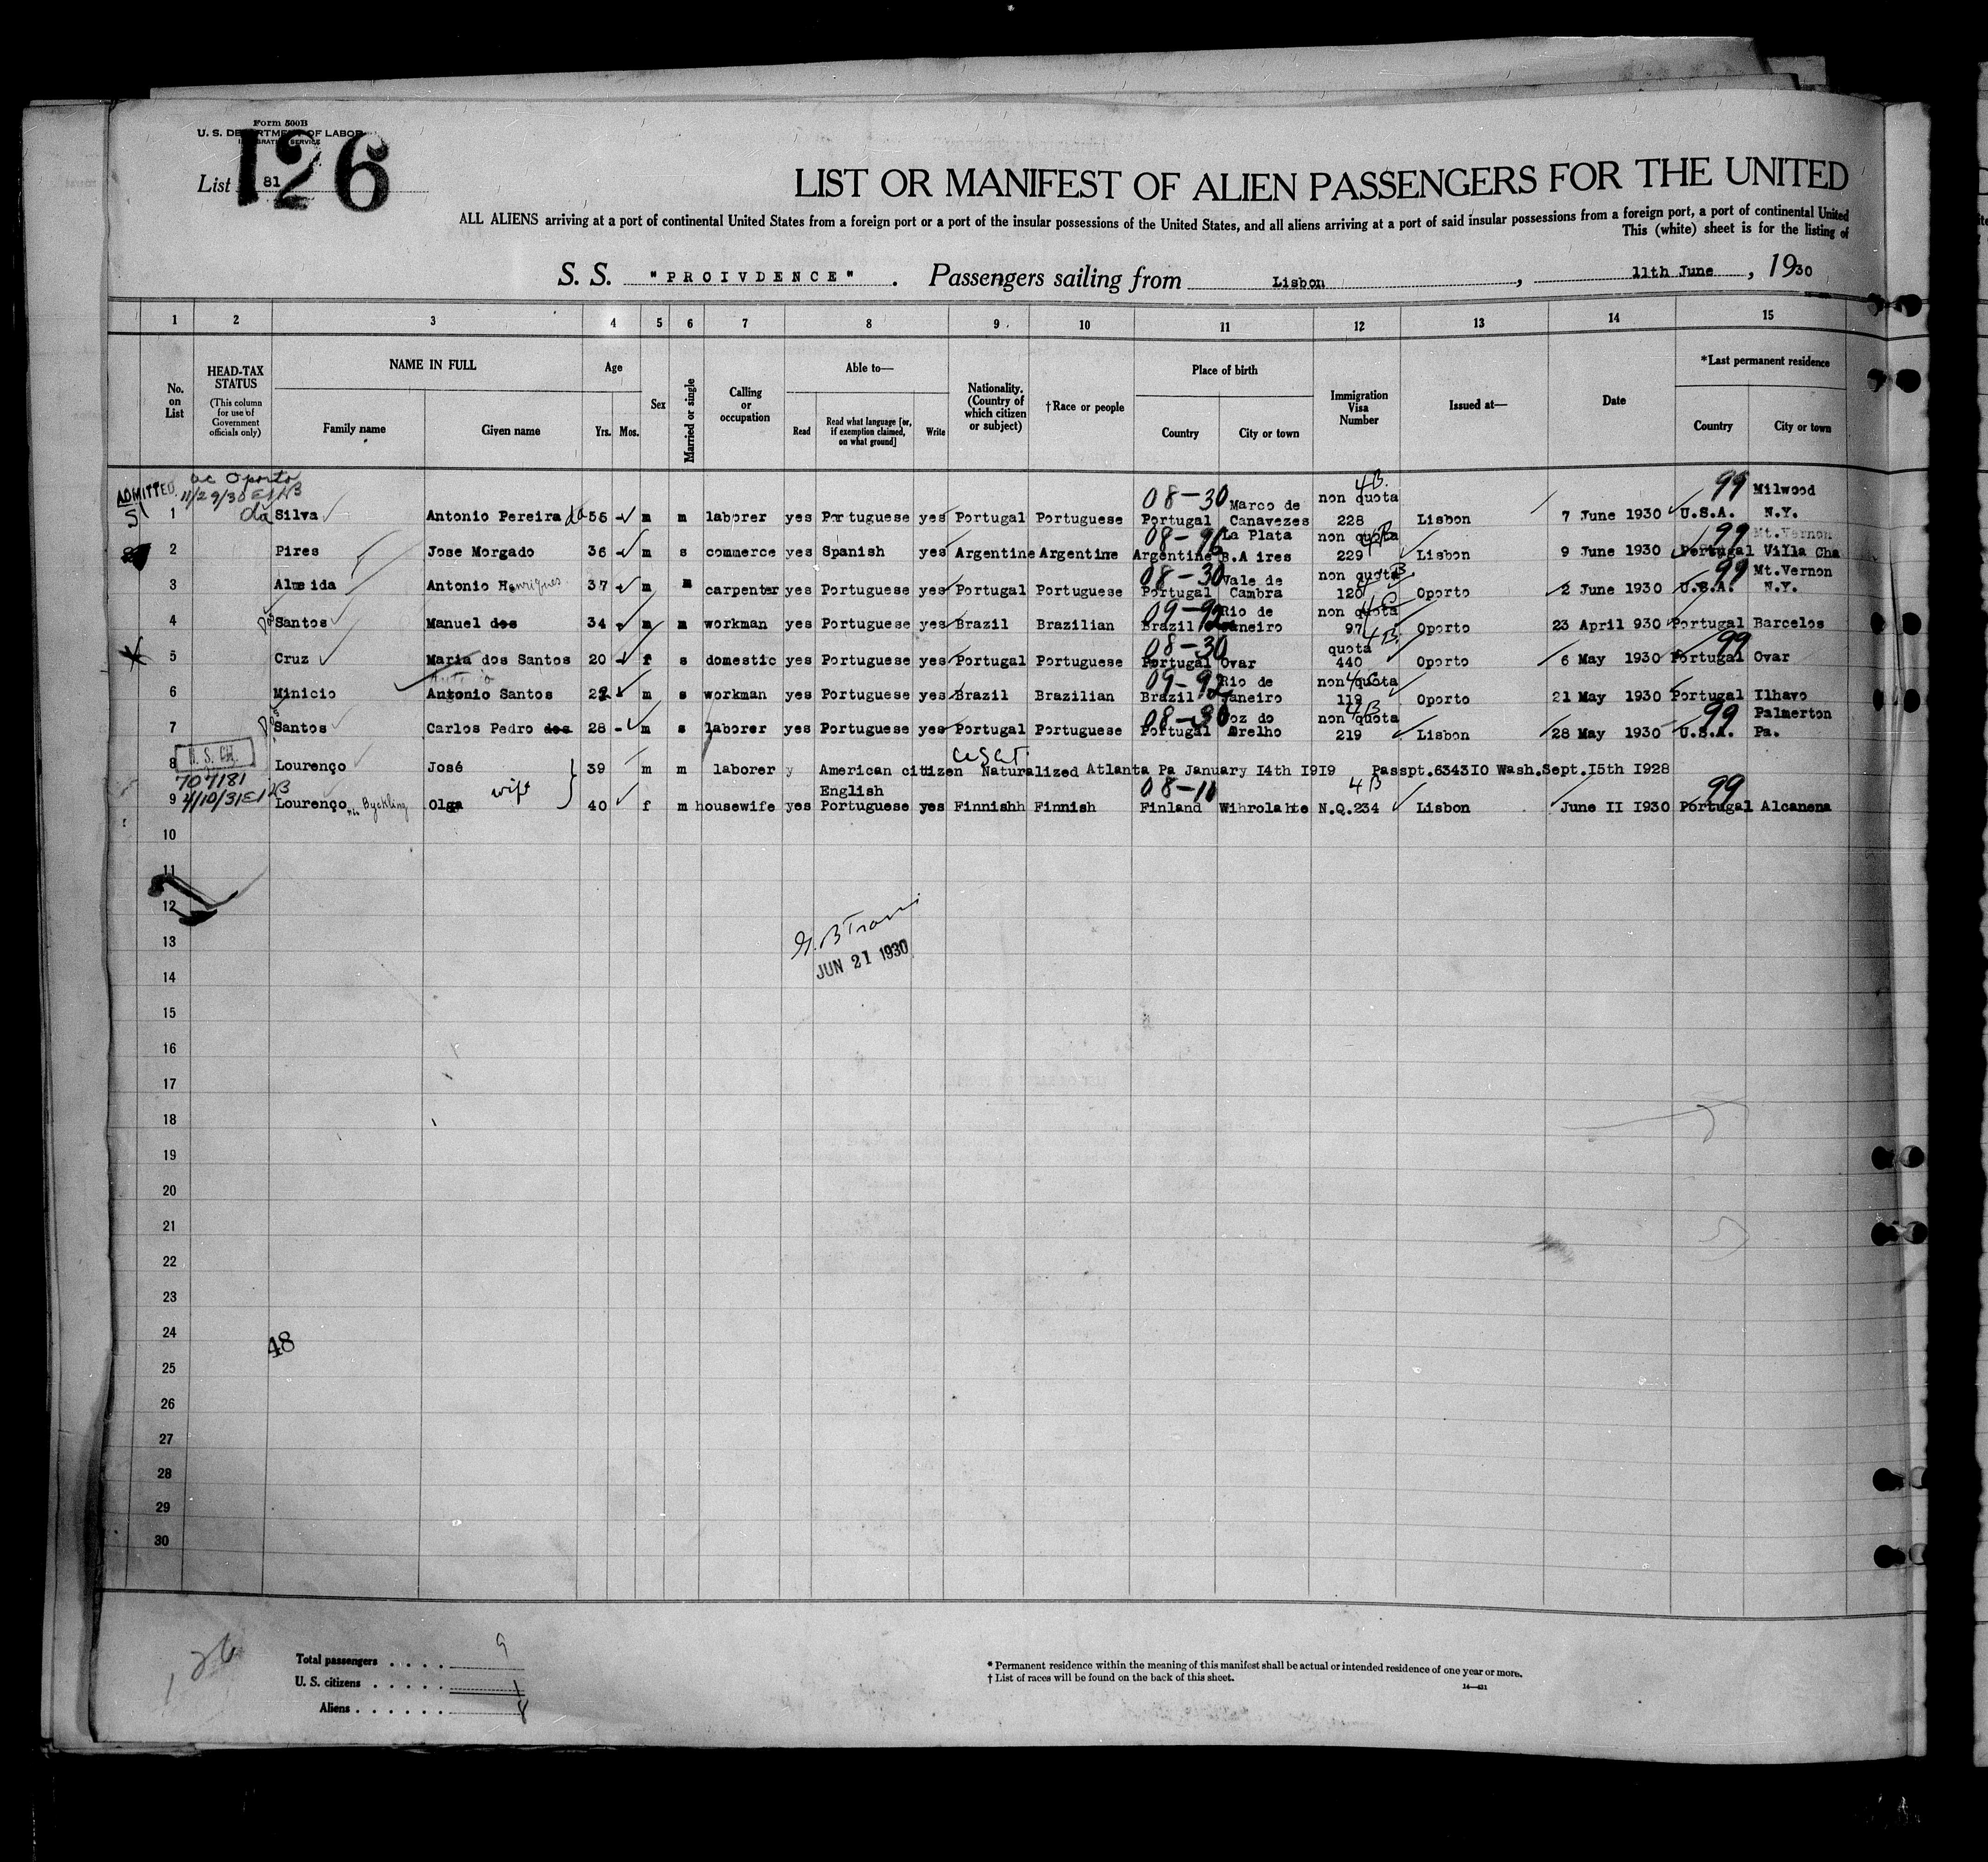 Form 500B
U. S. DEPARTMENT OF LABOR
IMMIGRATION SERVICE
126
List 81
LIST OR MANIFEST OF ALIEN PASSENGERS FOR THE UNITED
ALL ALIENS arriving at a port of continental United States from a foreign port or a port of the insular possessions of the United States, and all aliens arriving at a port of said insular possessions from a foreign port, a port of continental United
This (white) sheet is for the listing of
S. S. "PROIVDENCE". Passengers sailing from Lisbon, 11th June, 1930
1 2 3 4 5 6 7 8 9 10 11 12 13 14 15
No. on List
HEAD-TAX STATUS
(This column for use of Government officials only)
NAME IN FULL
Family name Given name
Age
Yrs. Mos.
Sex
Married or single
Calling or occupation
Able to—
Read Read what language [or, if exemption claimed, on what ground] Write
Nationality. (Country of which citizen or subject)
†Race or people
Place of birth
Country City or town
Immigration Visa Number
Issued at—
Date
*Last permanent residence
Country City or town
ac Oporto
ADMITTED 11/29/30
08-30 Marco de non quota 4B. 99 Milwood
1 da Silva Antonio Pereira da 55 m m laborer yes Portuguese yes Portugal Portuguese Portugal Canavezes 228 Lisbon 7 June 1930 U.S.A. N.Y.
08-96 La Plata non quota 4B 99 Mt.Vernon
2 Pires Jose Morgado 36 m s commerce yes Spanish yes Argentine Argentine Argentine B.A ires 229 Lisbon 9 June 1930 Portugal Villa Cha
08-30 Vale de non quota 4B 99 Mt.Vernon
3 Almeida Antonio Henriques 37 m m carpenter yes Portuguese yes Portugal Portuguese Portugal Cambra 120 Oporto 2 June 1930 U.S.A. N.Y.
09-92 Rio de non quota 4C
4 dos Santos Manuel dos 34 m m workman yes Portuguese yes Brazil Brazilian Brazil Janeiro 97 Oporto 23 April 930 Portugal Barcelos
08-30 quota 4B. 99
5 Cruz Maria dos Santos 20 f s domestic yes Portuguese yes Portugal Portuguese Portugal Ovar 440 Oporto 6 May 1930 Portugal Ovar
09-92 Rio de non quota 4C
6 Minicio Antonio Santos 22 m s workman yes Portuguese yes Brazil Brazilian Brazil Janeiro 119 Oporto 21 May 1930 Portugal Ilhavo
08-30 Foz do non quota 4B 99 Palmerton
7 dos Santos Carlos Pedro dos 28 m s laborer yes Portuguese yes Portugal Portuguese Portugal Arelho 219 Lisbon 28 May 1930 U.S.A. Pa.
8 Lourenço José 39 m m laborer y American citizen Naturalized Atlanta Pa January I4th I9I9 Passpt.6343I0 Wash.Sept.I5th I928
707181 wife English 08-11 4B 99
9 4/10/31 Lourenço Byckling Olga 40 f m housewife yes Portuguese yes Finnishh Finnish Finland Wihrolahte N.Q.234 Lisbon June II I930 Portugal Alcanena
10
11
12
13
JUN 21 1930
14
15
16
17
18
19
20
21
22
23
24
48
25
26
27
28
29
30
126
Total passengers . . . . 9
U. S. citizens . . . . . 1
Aliens . . . . . . 8
* Permanent residence within the meaning of this manifest shall be actual or intended residence of one year or more.
† List of races will be found on the back of this sheet.
14—421